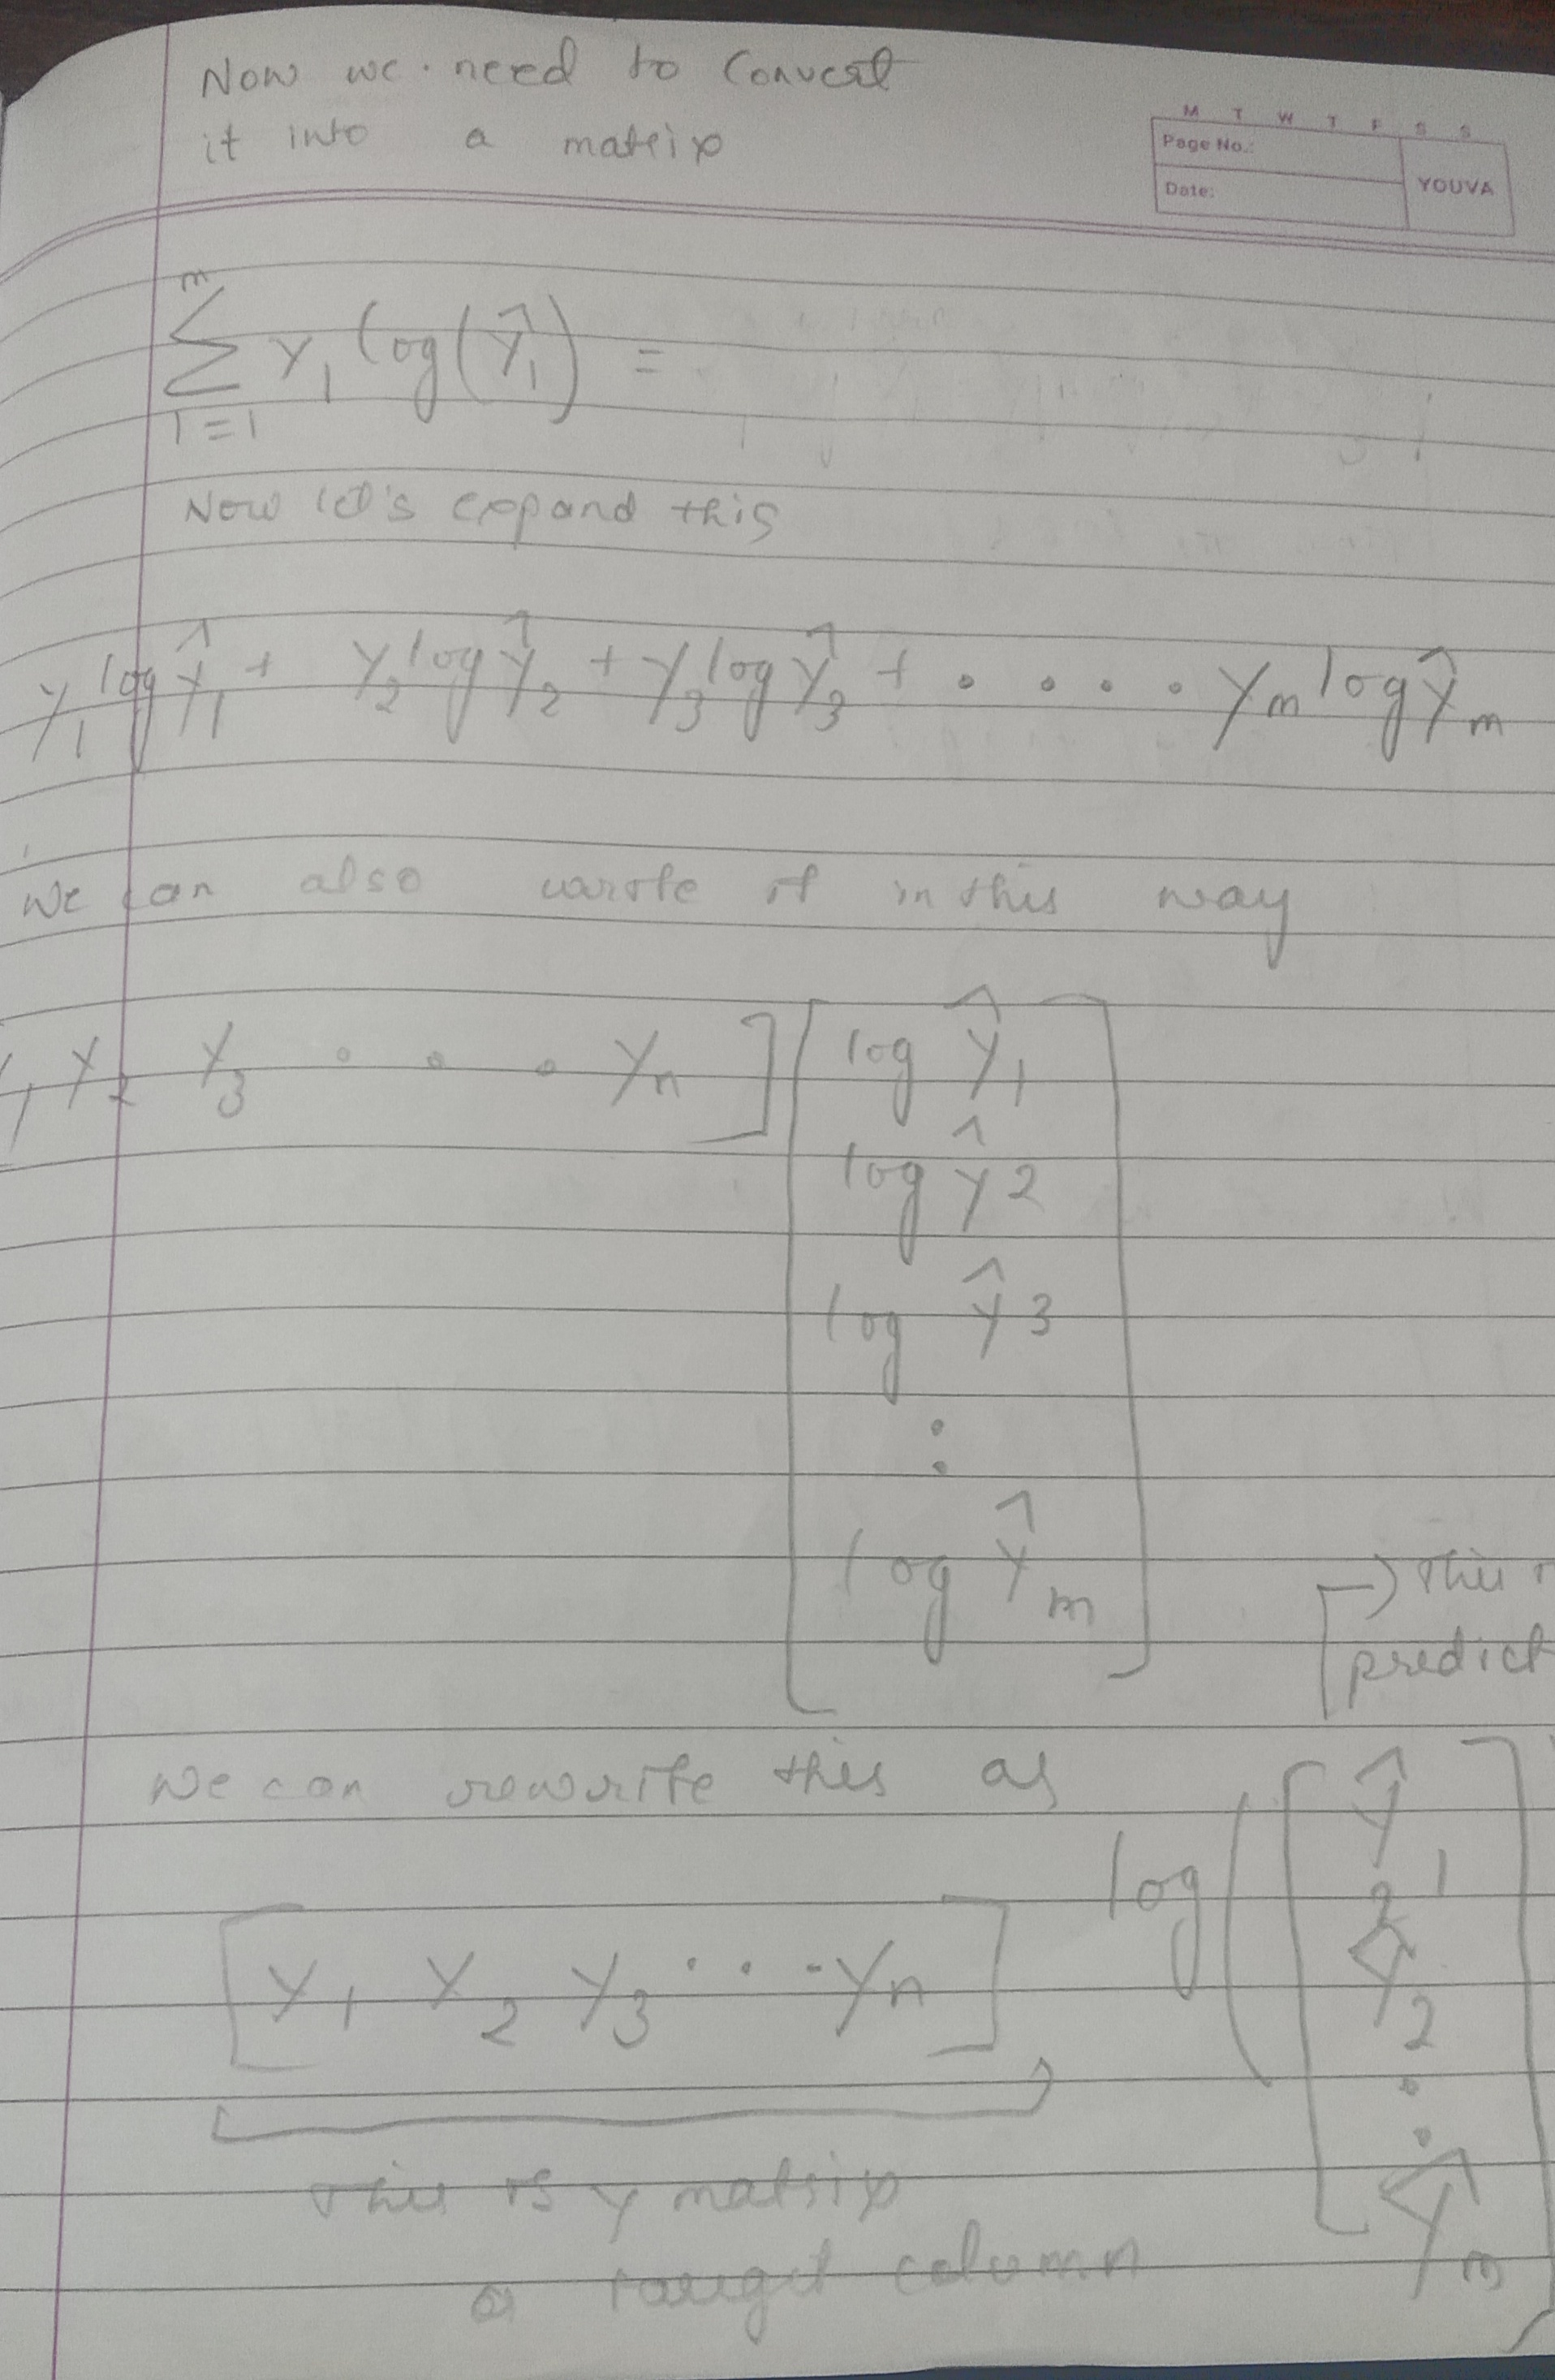 Now we need to convert
it into a matrix
M T W T F S S
Page No.:
Date:
YOUVA
m
∑ y₁ log(ŷ₁) =
1=1
Now let's expand this
y₁ log ŷ₁ + y₂ log ŷ₂ + y₃ log ŷ₃ + . . . . yₘ log ŷₘ
We can also wrote it in this way
y₁ y₂ y₃ . . . yₙ ] [ log ŷ₁
log ŷ2
log ŷ3
:
log ŷₘ ]
→ This
predict
We can rewrite this as
[ y₁ y₂ y₃ . . . yₙ ] log ( [ ŷ₁
ŷ₂
:
ŷₘ ]
This is y matrix
or target column